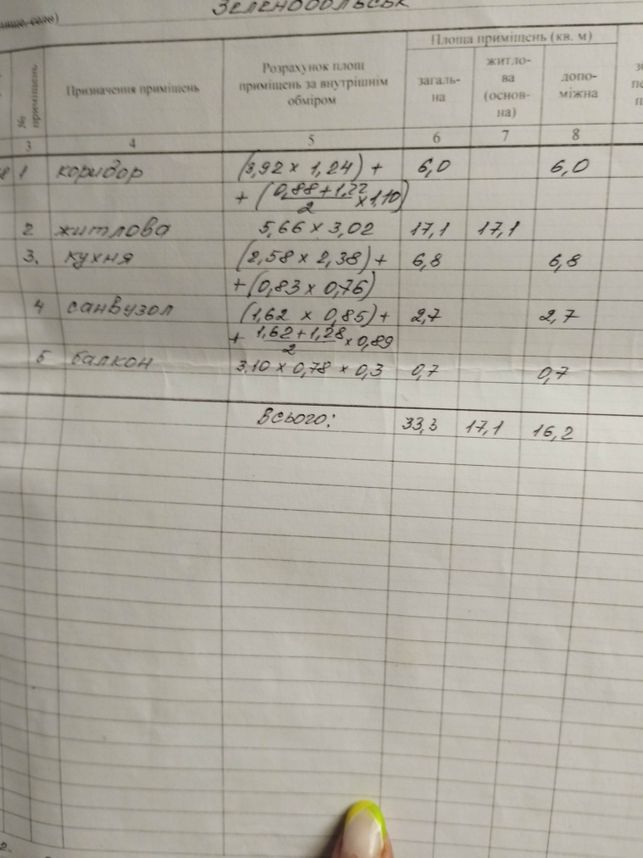 Зеленодольськ
Площа приміщень (кв. м)
№ приміщень
Призначення приміщень
Розрахунок площ приміщень за внутрішнім обміром
загаль-на
житло-ва (основ-на)
допо-міжна
3 4 5 6 7 8
1 коридор (3,92 x 1,24) + 6,0 6,0
+ (0,88+1,22/2 x 1,10)
2 житлова 5,66 x 3,02 17,1 17,1
3. кухня (2,58 x 2,38) + 6,8 6,8
+ (0,83 x 0,76)
4 санвузол (1,62 x 0,85) + 2,7 2,7
+ 1,62+1,28/2 x 0,89
5 балкон 3,10 x 0,78 x 0,3 0,7 0,7
Всього: 33,3 17,1 16,2
2.